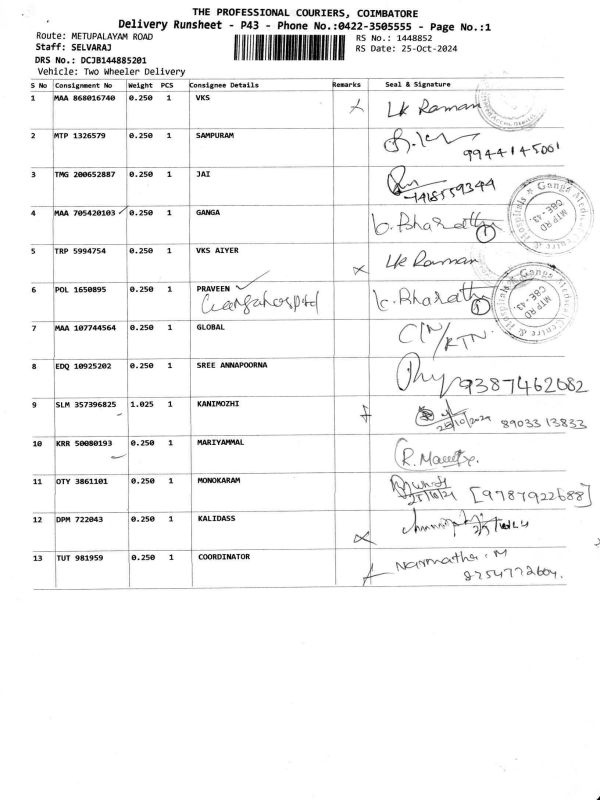 THE PROFESSIONAL COURIERS, COIMBATORE
Delivery Runsheet - P43 - Phone No.:0422-3505555 - Page No.:1
Route: METUPALAYAM ROAD
RS No.: 1448852
Staff: SELVARAJ
RS Date: 25-Oct-2024
DRS No.: DCJB144885201
Vehicle: Two Wheeler Delivery
S No Consignment No Weight PCS Consignee Details Remarks Seal & Signature
1 MAA 868016740 0.250 1 VKS LK Raman
2 MTP 1326579 0.250 1 SAMPURAM
9944145001
3 TMG 200652887 0.250 1 JAI
7418559344
4 MAA 705420103 0.250 1 GANGA b. Bharathi 1
Ganga Medical Centre & Hospitals
MTP RD
CBE -43.
5 TRP 5994754 0.250 1 VKS AIYER LK Raman
6 POL 1650895 0.250 1 PRAVEEN b. Bharathi
Ganga hospital
Ganga Medical Centre & Hospitals
MTP RD
CBE -43.
7 MAA 107744564 0.250 1 GLOBAL CIN/RTN.
8 EDQ 10925202 0.250 1 SREE ANNAPOORNA 9387462682
9 SLM 357396825 1.025 1 KANIMOZHI
25/10/2024 89033 13833
10 KRR 50080193 0.250 1 MARIYYAMMAL
11 OTY 3861101 0.250 1 MONOKARAM [9787922688]
12 DPM 722043 0.250 1 KALIDASS
13 TUT 981959 0.250 1 COORDINATOR Narmatha. M
8754772604.